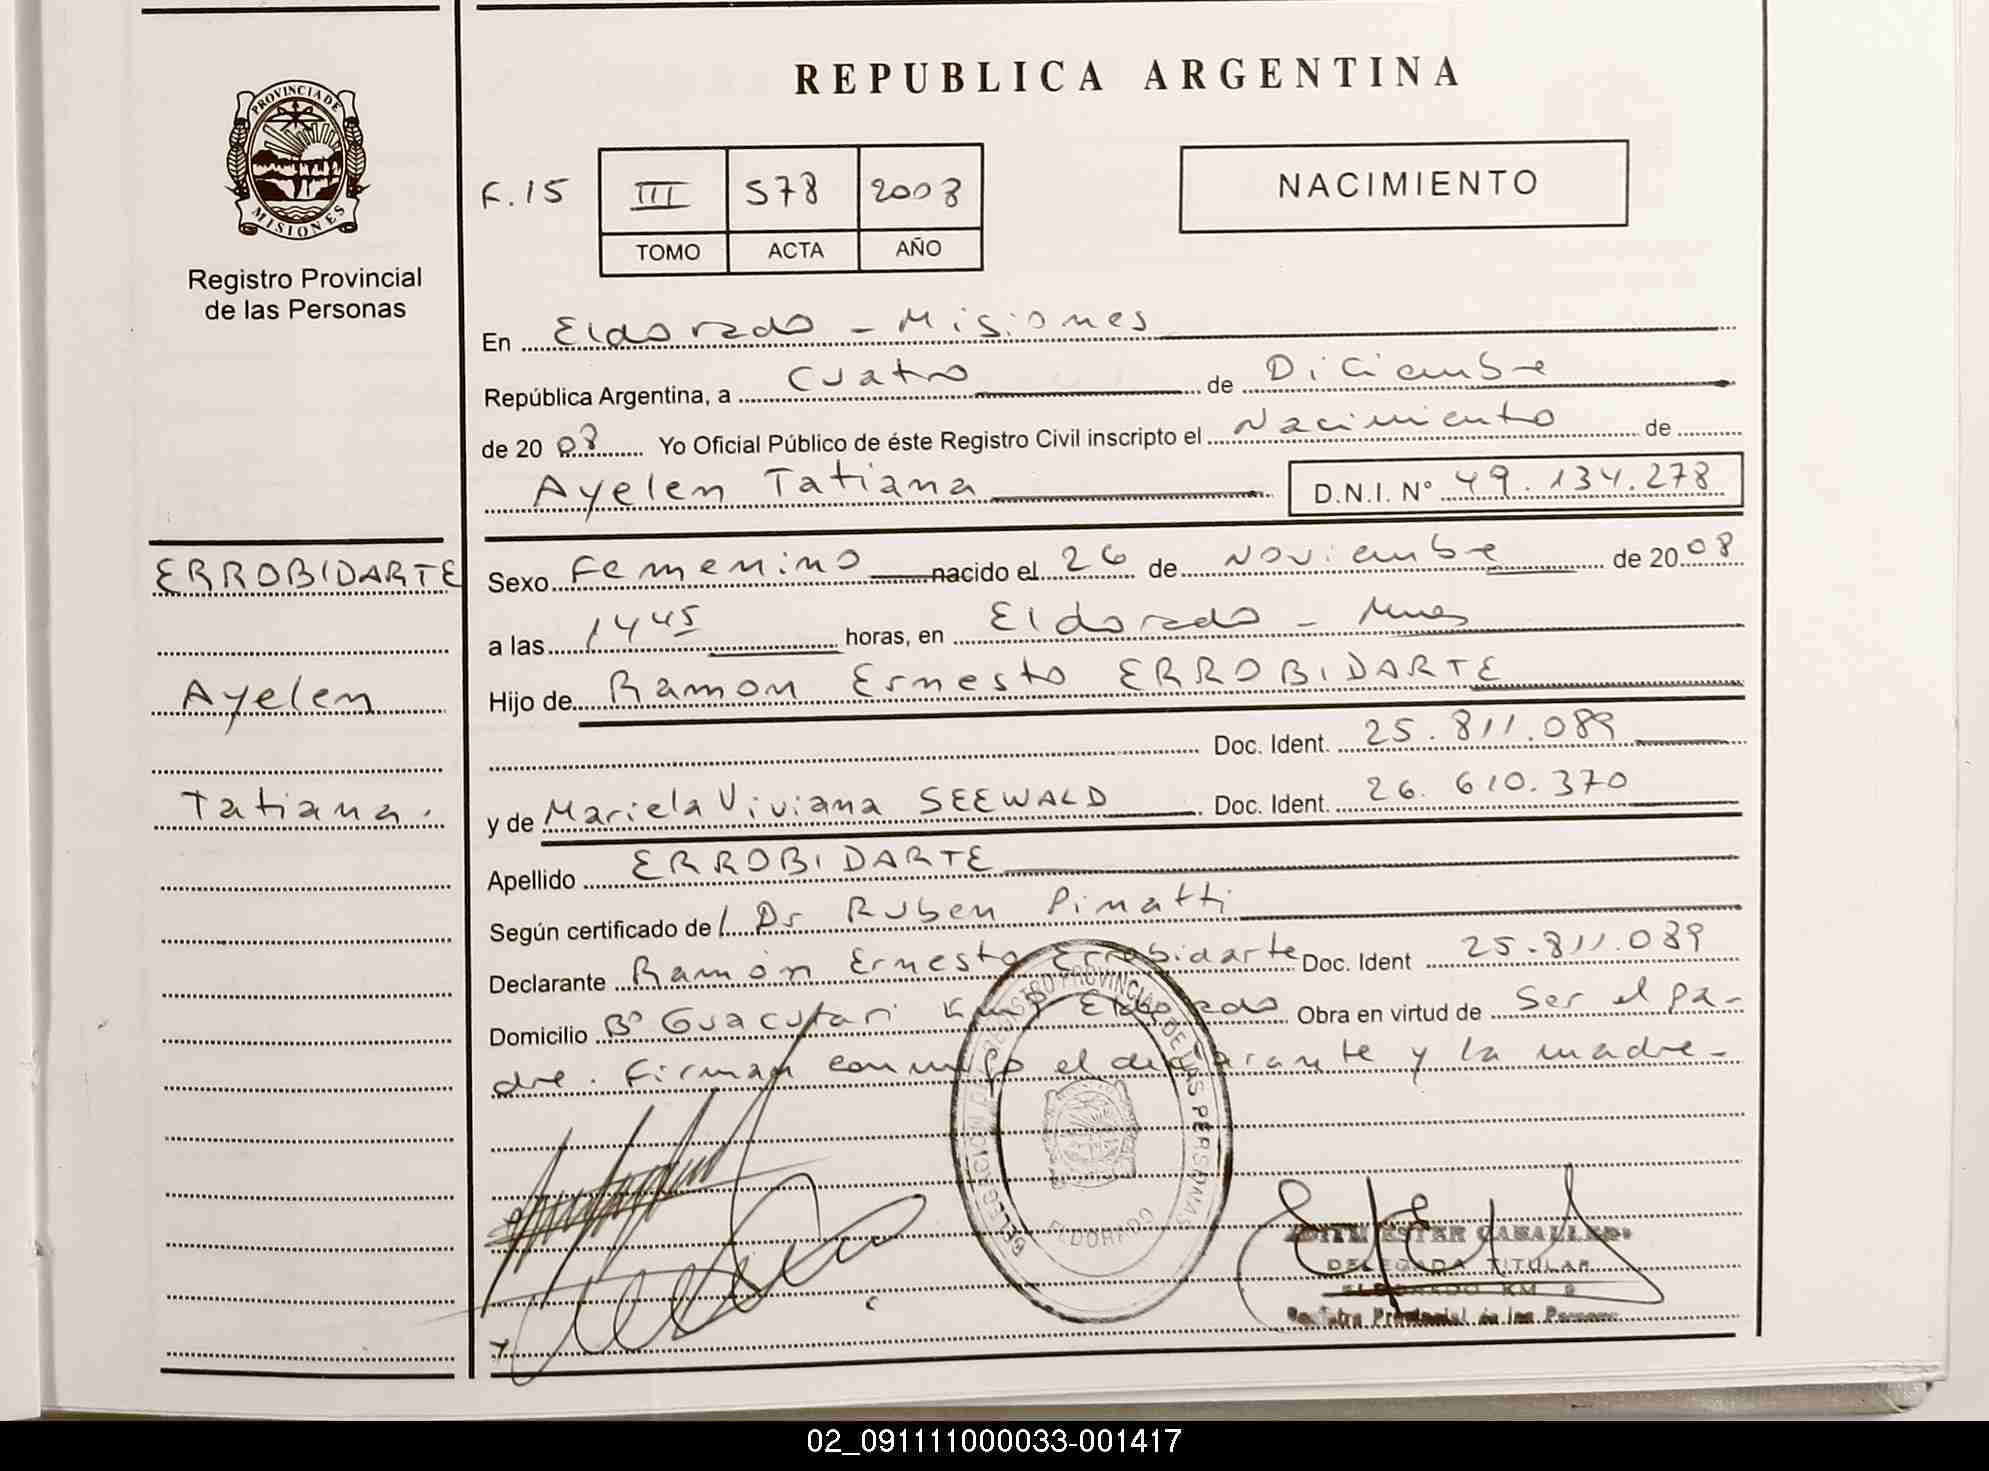 REPUBLICA ARGENTINA
PROVINCIA DE
MISIONES
Registro Provincial
de las Personas
F. 15 III 578 2008
TOMO ACTA AÑO
NACIMIENTO
En Eldorado - Misiones
República Argentina, a Cuatro de Diciembre
de 2008 Yo Oficial Público de éste Registro Civil inscripto el Nacimiento de
Ayelen Tatiana D.N.I. N° 49.134.278
ERROBIDARTE
Ayelen
Tatiana.
Sexo Femenino nacido el 26 de Noviembre de 2008
a las 1445 horas, en Eldorado - Mnes
Hijo de Ramon Ernesto ERROBIDARTE
Doc. Ident. 25.811.089
y de Mariela Viviana SEEWALD Doc. Ident. 26.610.370
Apellido ERROBIDARTE
Según certificado de Dr Ruben Pinatti
Declarante Ramón Ernesto Errobidarte Doc. Ident 25.811.089
Domicilio B° Guacutari Km 9 Eldorado Obra en virtud de Ser el pa-
dre. Firman conmigo el declarante y la madre-
DELEGACION REGISTRO PROVINCIAL DE LAS PERSONAS
ELDORADO
EDITH ESTER CABALLERO
DELEGADA TITULAR
ELDORADO KM 9
Registro Provincial de las Personas
02_091111000033-001417